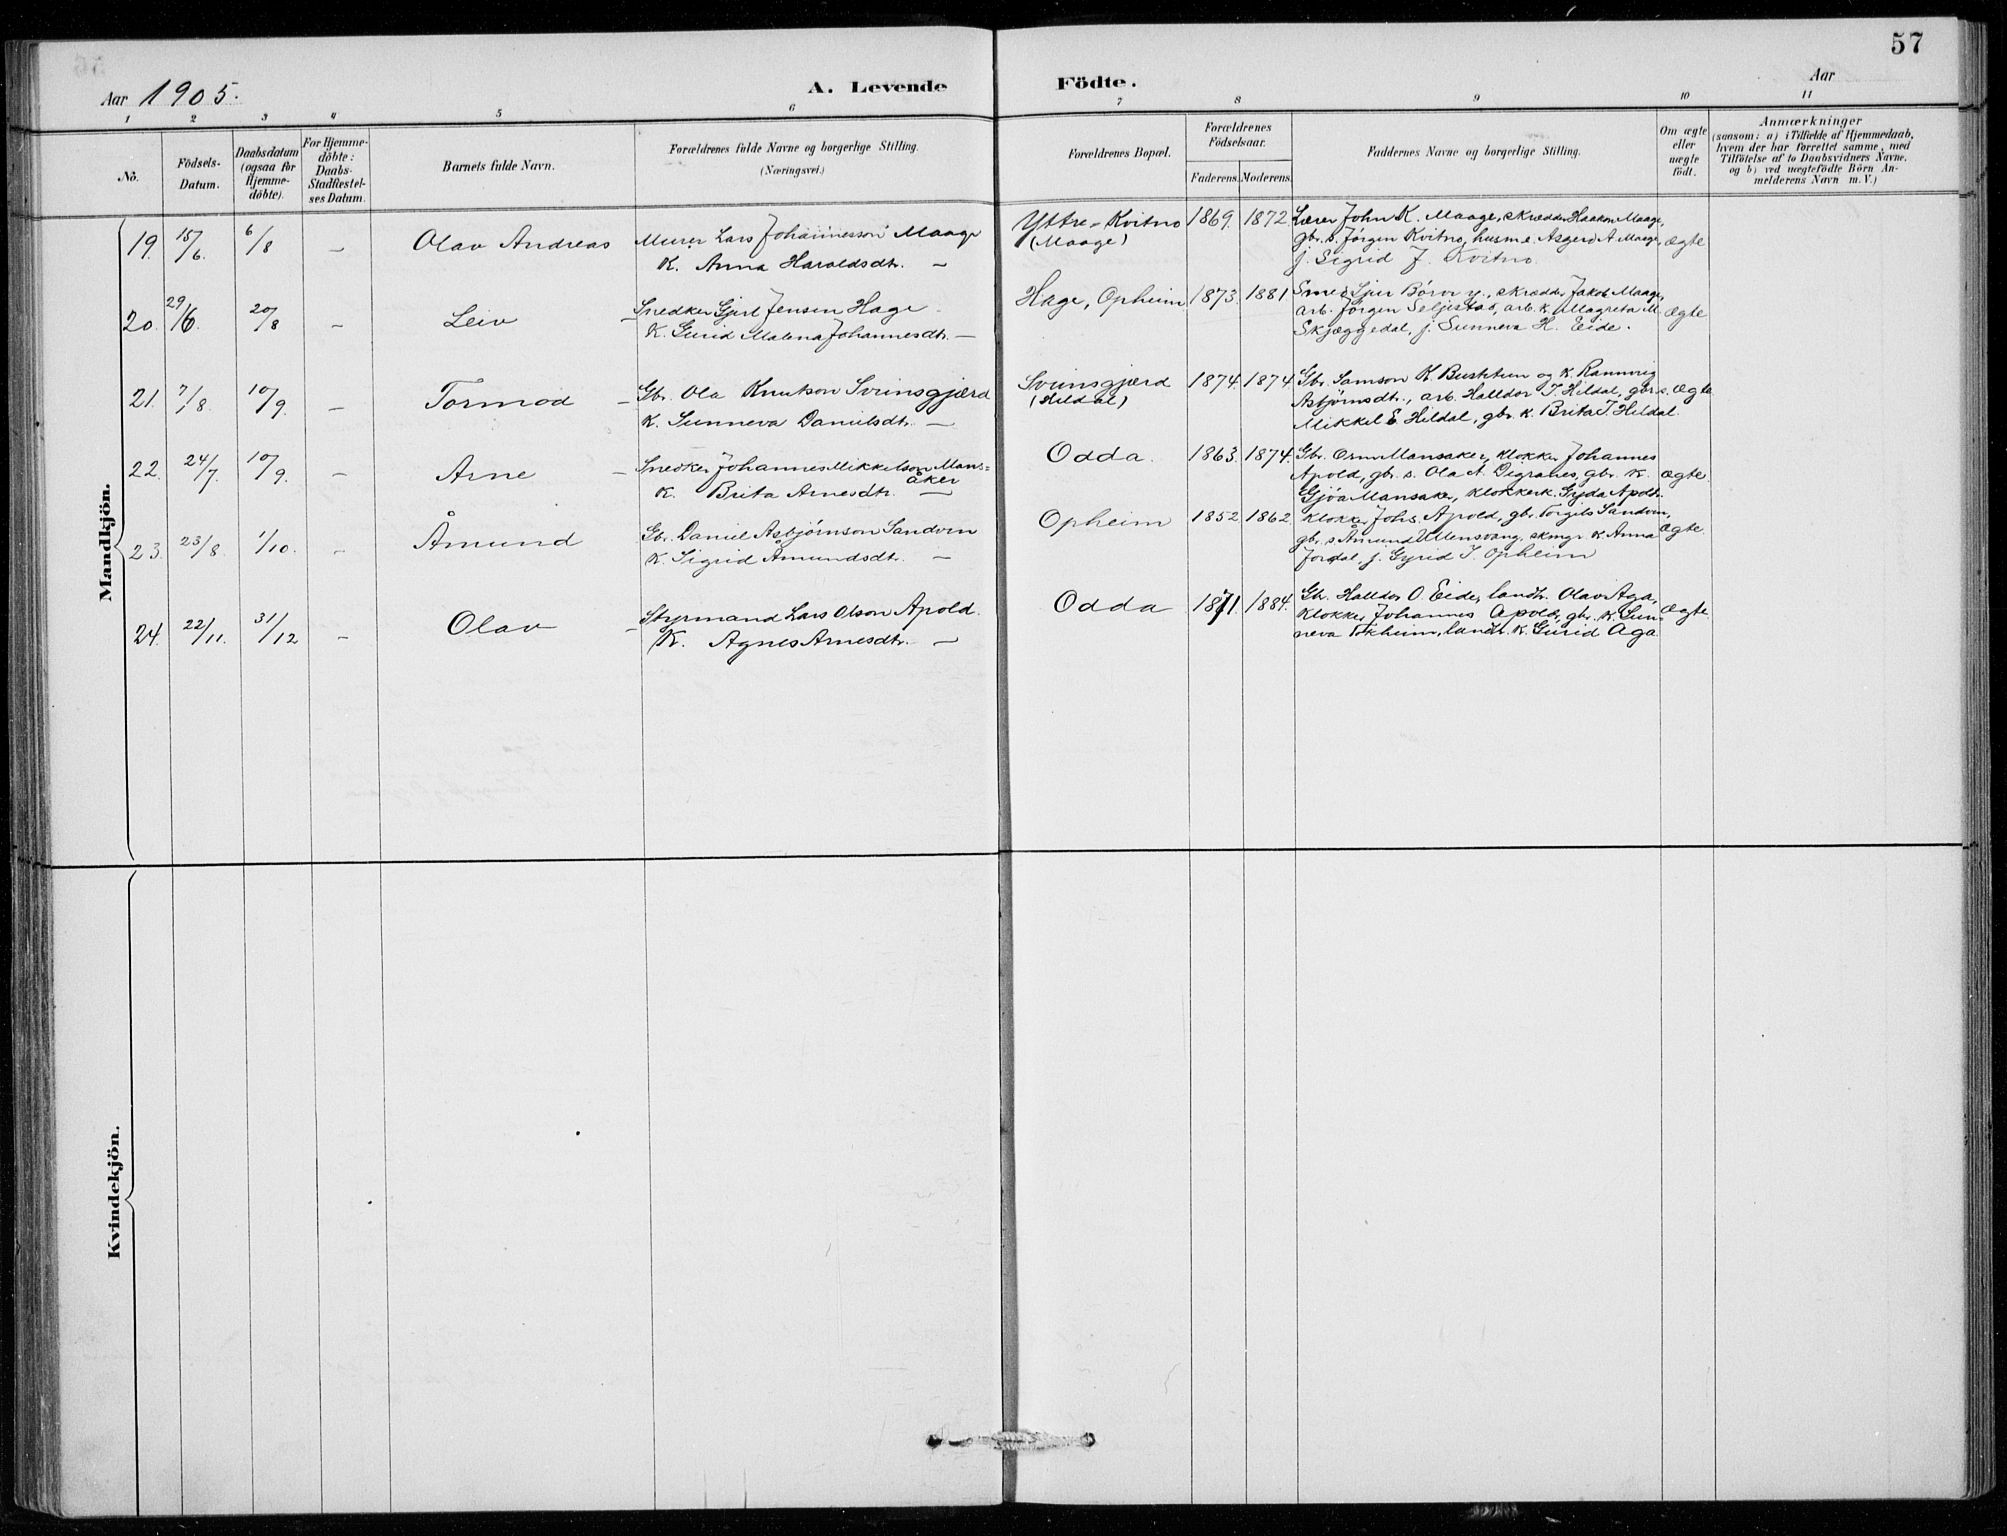 57
Aar 1905.
A. Levende Födte.
Aar
1 2 3 4 5 6 7 8 9 10 11
No.
Födsels-Datum.
Daabsdatum (ogsaa for Hjemme-döbte).
For Hjemme-döbte: Daabs-Stadfæstel-ses Datum.
Barnets fulde Navn.
Forældrenes fulde Navne og borgerlige Stilling.
(Næringsvei.)
Forældrenes Bopæl.
Forældrenes Födselsaar.
Faderens. Moderens.
Faddernes Navne og borgerlige Stilling.
Om ægte eller uægte födt.
Anmærkninger
(saasom: a) i Tilfælde af Hjemmedaab,
hvem der har forrettet samme, med
Tilföielse af to Daabsvidners Navne,
og b) ved uægtefödte Börn An-
melderens Navn m. V.)
Mandkjön.
19. 15/6. 6/8 – Olav Andreas
Murer Lars Johannesson Maage
K. Anna Haraldsdtr. —
Yttre-Kvitno
(Maage)
1869. 1872.
Lærer John K. Maage, skrædder Haakon Maage,
gbr. s. Jörgen Kvitno, husm.e. Asgerd A Maage,
j. Sigrid J. Kvitno.
ægte
20. 29/6. 20/8 – Leiv –
Snedker Gjert Jensen Hage
K. Gurid Malena Johannesdtr. —
Hage, Opheim
1873. 1881
Smed Sjur Börve y., skrædder Jakob Maage,
arb. Jörgen Seljestad, arb. k. Magreta M
Skjæggedal, j. Sunneva H. Eide.
ægte
21. 7/8. 10/9. – Tormod –
Gbr. Ola Knutson Svinsgjærd
K. Sunneva Danielsdtr. —
Svinsgjærd
(Hildal)
1874. 1874
Gbr. Samson K. Bustetun og K. Rannveig
Asbjörnsdtr., arb. Halldor T. Hildal, gbr. s.
Mikkel E. Hildal, gbr. k. Brita T. Hildal.
ægte
22. 24/7. 10/9. – Arne –
Snedker Johannes Mikkelson Mans-
åker
K. Brita Arnesdtr. —
Odda.
1863. 1874.
Gbr. Orm Mansaker, klokker Johannes
Apold, gbr. s. Ola A. Digranes, gbr. K.
Gjöa Mansaker, klokkerk. Gyda Apold.
ægte.
23. 23/8. 1/10. – Åmund
Gbr. Daniel Asbjörnson Sandven
K. Sigrid Åmundsdtr. —
Opheim
1852 1862
Klokker Johs. Apold, gbr. Torgils Sandven,
gbr. s. Åmund Ullensvang, skmgr. K. Anna
Jordal, j. Gyrid I. Opheim
Ægte.
24. 22/11. 31/12 – Olav –
Styrmand Lars Olson Apold.
K. Agnes Arnesdtr. —
Odda
1871. 1884.
Gbr. Halldor O. Eide, landh. Olav Aga,
Klokker Johannes Apold, gbr. K. Sun-
neva Tokheim, landh. K. Gurid Aga
Ægte.
Kvindekjön.